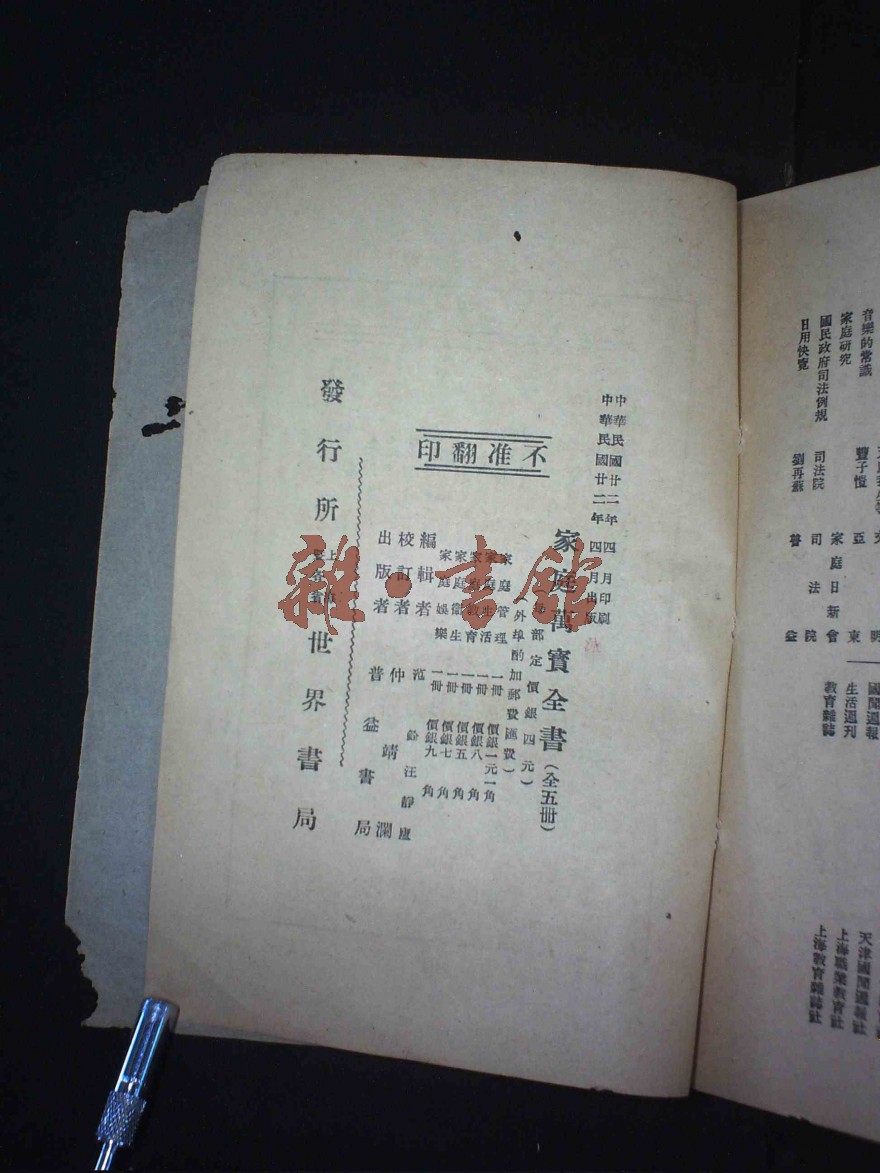 中華民國廿二年四月印刷
中華民國廿二年四月出版
家庭萬寶全書（全五冊）
部定價銀四元）
外埠酌加郵費匯費）
家庭管理 一冊 價銀一元一角
家庭生活 一冊 價銀八角
家庭教育 一冊 價銀五角
家庭衛生 一冊 價銀七角
家庭娛樂 一冊 價銀九角
不准翻印
編輯者 范 銓 汪靜廬
校訂者 仲靖瀾
出版者 普益書局
發行所 世界書局
上
音樂的常識
家庭研究
國民政府司法例規
日用快覽
豐子愷
司法院
劉再蘇
亞東
家庭日新會
司法院
普益
國聞週報
生活週刊
教育雜誌
天津國聞週報社
上海職業教育社
上海教育雜誌社
雜·書館